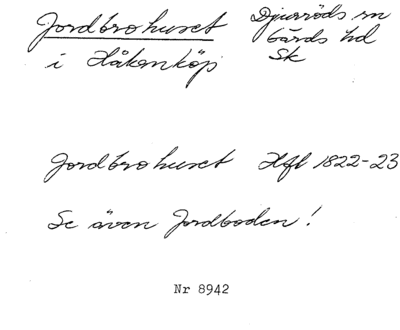 Jordbrohuset Djurröds sn
i Håkanköp Gärds hd
Sk
Jordbrohuset Hfl 1822-23
Se även Jordboden!
Nr 8942